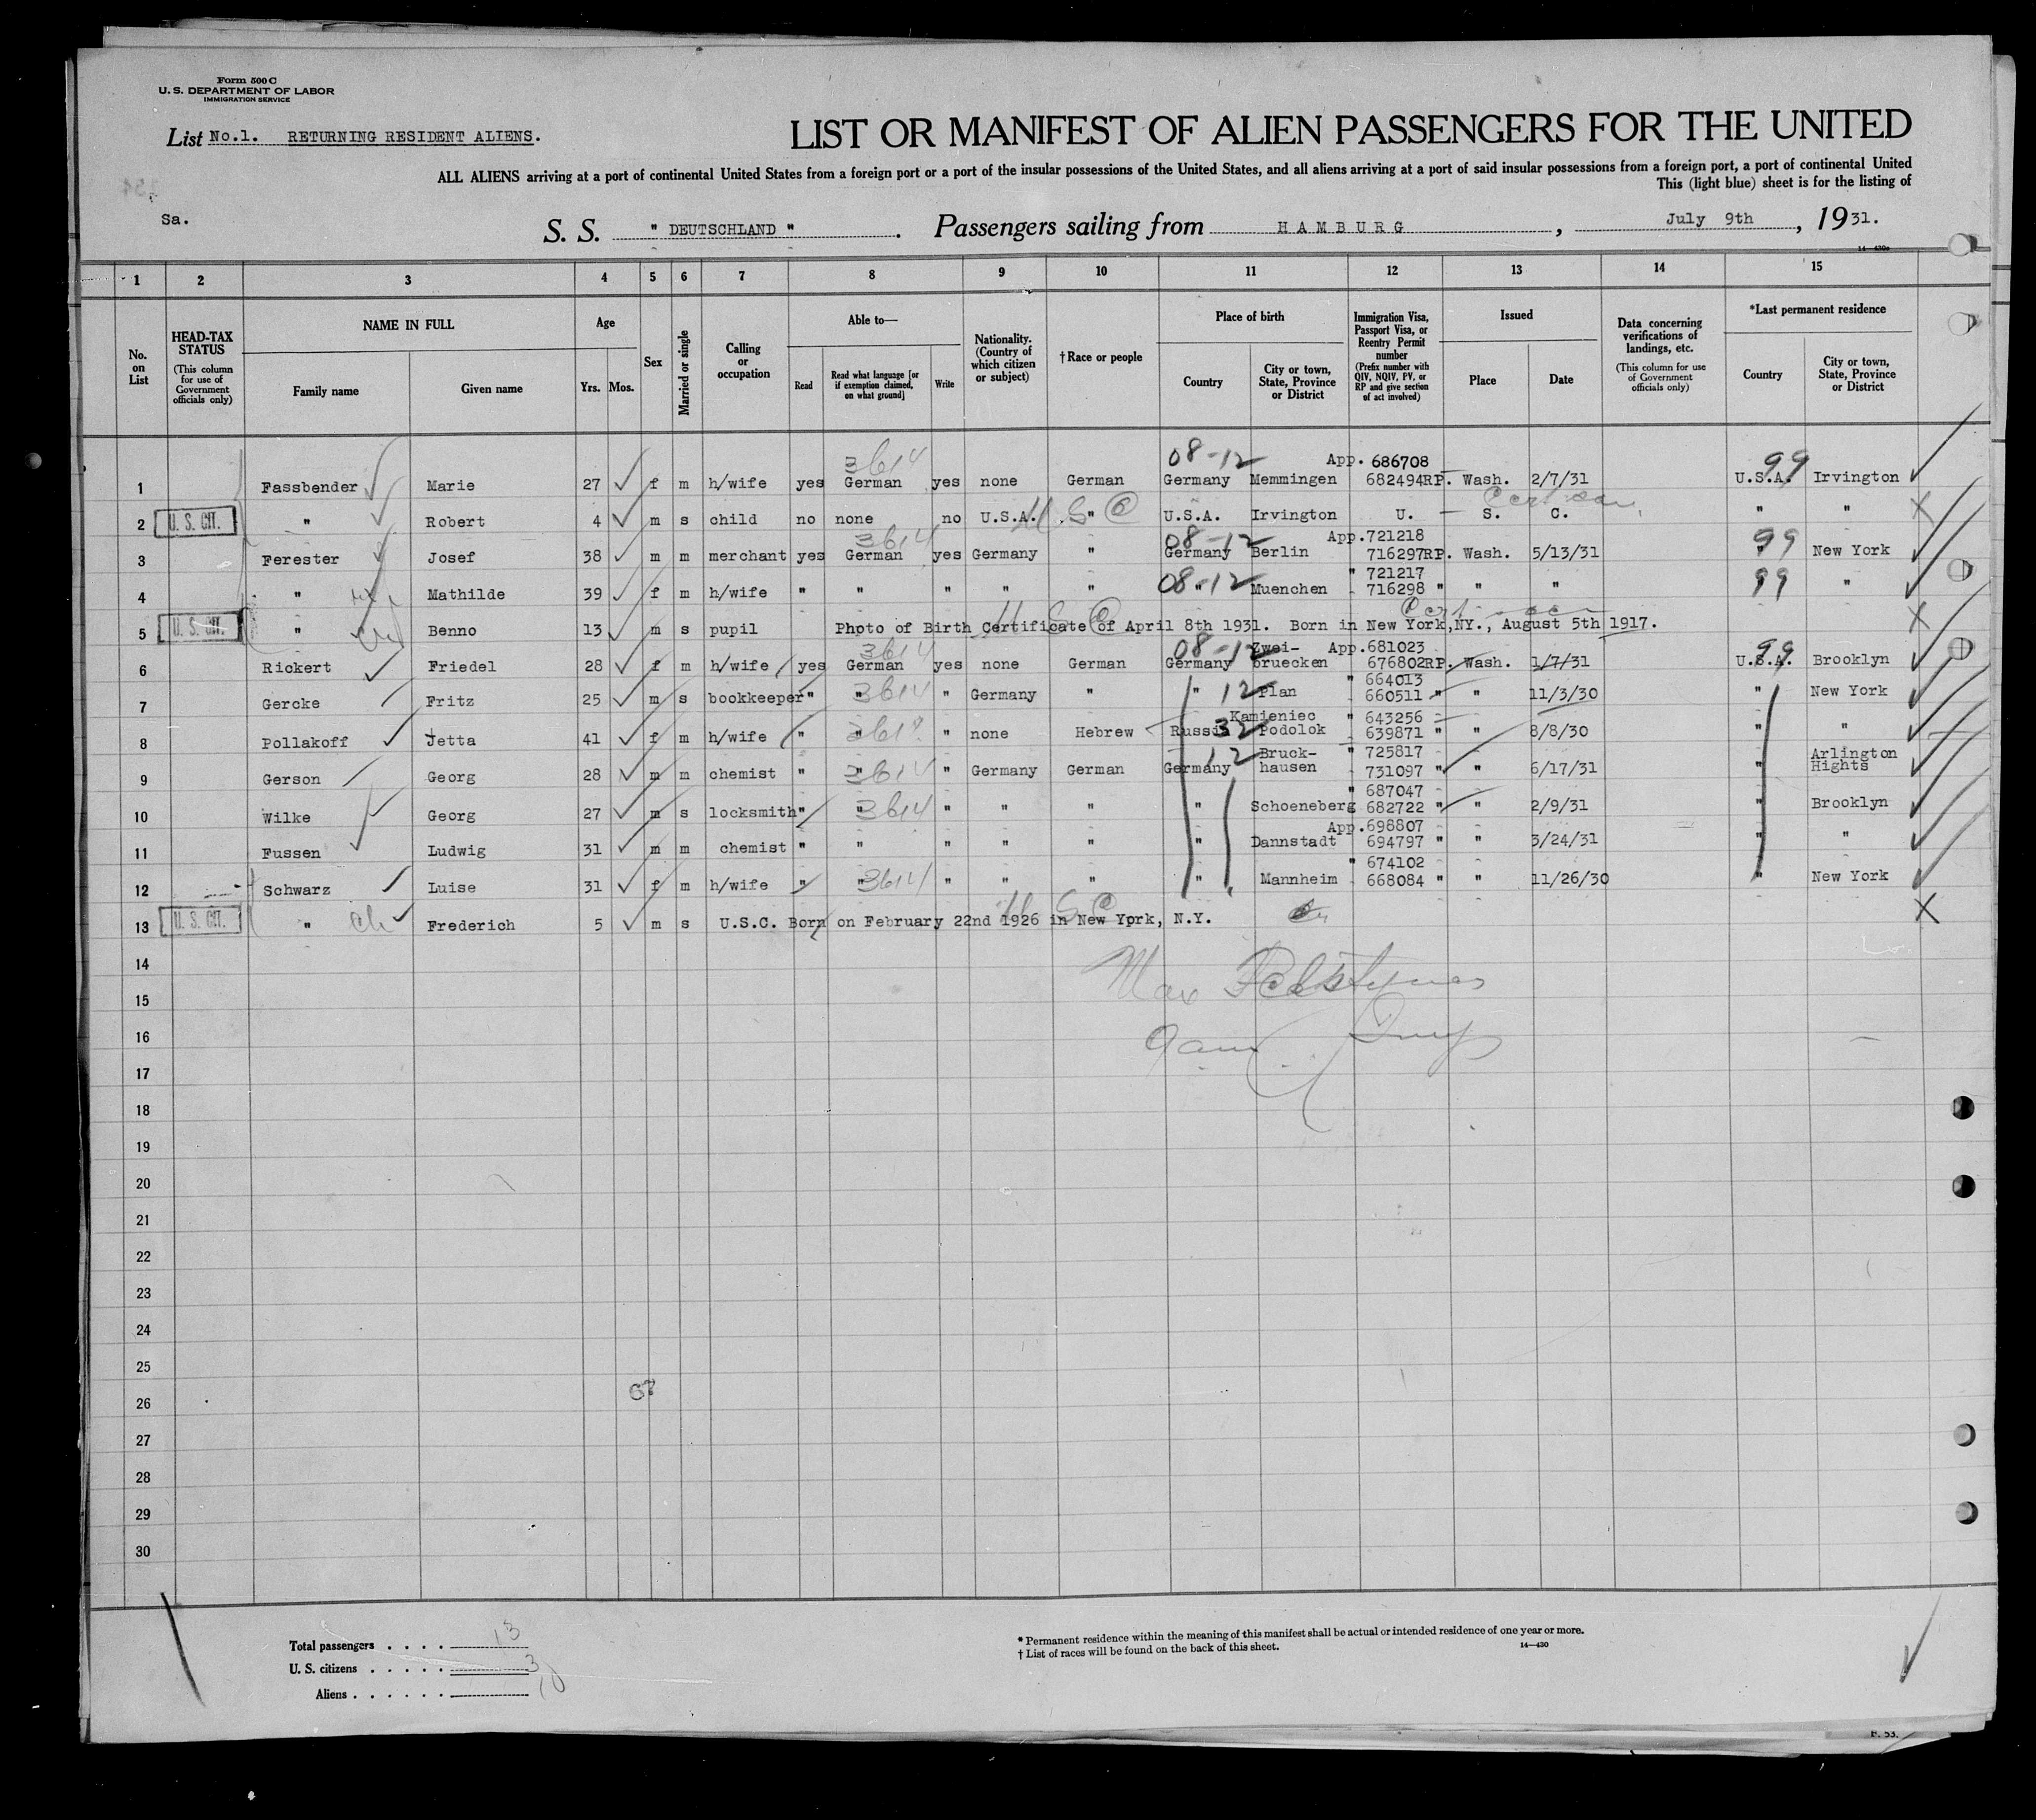 Form 500 C
U. S. DEPARTMENT OF LABOR
IMMIGRATION SERVICE
List No.1. RETURNING RESIDENT ALIENS.
LIST OR MANIFEST OF ALIEN PASSENGERS FOR THE UNITED
ALL ALIENS arriving at a port of continental United States from a foreign port or a port of the insular possessions of the United States, and all aliens arriving at a port of said insular possessions from a foreign port, a port of continental United
This (light blue) sheet is for the listing of
Sa.
S. S. " DEUTSCHLAND " . Passengers sailing from HAMBURG , July 9th , 1931.
14—430c
1 2 3 4 5 6 7 8 9 10 11 12 13 14 15
No. on List
HEAD-TAX STATUS (This column for use of Government officials only)
NAME IN FULL Family name Given name
Age Yrs. Mos.
Sex
Married or single
Calling or occupation
Able to— Read Read what language [or if exemption claimed, on what ground] Write
Nationality. (Country of which citizen or subject)
† Race or people
Place of birth Country City or town, State, Province or District
Immigration Visa, Passport Visa, or Reentry Permit number (Prefix number with QIV, NQIV, PV, or RP and give section of act involved)
Issued Place Date
Data concerning verifications of landings, etc. (This column for use of Government officials only)
*Last permanent residence Country City or town, State, Province or District
3614 08-12 App. 686708 99
1 Fassbender Marie 27 f m h/wife yes German yes none German Germany Memmingen 682494RP. Wash. 2/7/31 U.S.A. Irvington
2 U. S. CIT. " Robert 4 m s child no none no U.S.A. " U.S.A. Irvington U. — S. C. " "
3614 08-12 App.721218 99
3 Ferester Josef 38 m m merchant yes German yes Germany " Germany Berlin 716297RP. Wash. 5/13/31 " New York
" 721217
4 " Mathilde 39 f m h/wife " " " " " 08-12 " Muenchen 716298 " " " 99 "
5 U. S. CIT. " Benno 13 m s pupil Photo of Birth Certificate of April 8th 1931. Born in New York,NY., August 5th 1917.
3614 08-12 Zwei- App.681023 99
6 Rickert Friedel 28 f m h/wife yes German yes none German Germany bruecken 676802RP. Wash. 1/7/31 U.S.A. Brooklyn
" 664013
7 Gercke Fritz 25 m s bookkeeper " " 3614 " Germany " " 12 Plan 660511 " " 11/3/30 " New York
Kamieniec " 643256
8 Pollakoff Jetta 41 f m h/wife " " " none Hebrew Russia 32 Podolok 639871 " " 8/8/30 " "
12 Bruck- " 725817 Arlington
9 Gerson Georg 28 m m chemist " " 3614 " Germany German Germany hausen 731097 " " 6/17/31 " Hights
" 687047
10 Wilke Georg 27 m s locksmith " " 3614 " " " " Schoeneberg 682722 " " 2/9/31 " Brooklyn
App.698807
11 Fussen Ludwig 31 m m chemist " " " " " " Dannstadt 694797 " " 3/24/31 " "
" 674102
12 Schwarz Luise 31 f m h/wife " " 3614 " " " " Mannheim 668084 " " 11/26/30 " New York
13 U. S. CIT. " Frederich 5 m s U.S.C. Born on February 22nd 1926 in New York, N.Y.
14
Max
15
16
17
18
19
20
21
22
23
24
25
26
27
28
29
30
Total passengers . . . . 13
U. S. citizens . . . . . 3
Aliens . . . . . . 10
* Permanent residence within the meaning of this manifest shall be actual or intended residence of one year or more.
† List of races will be found on the back of this sheet.
14—430